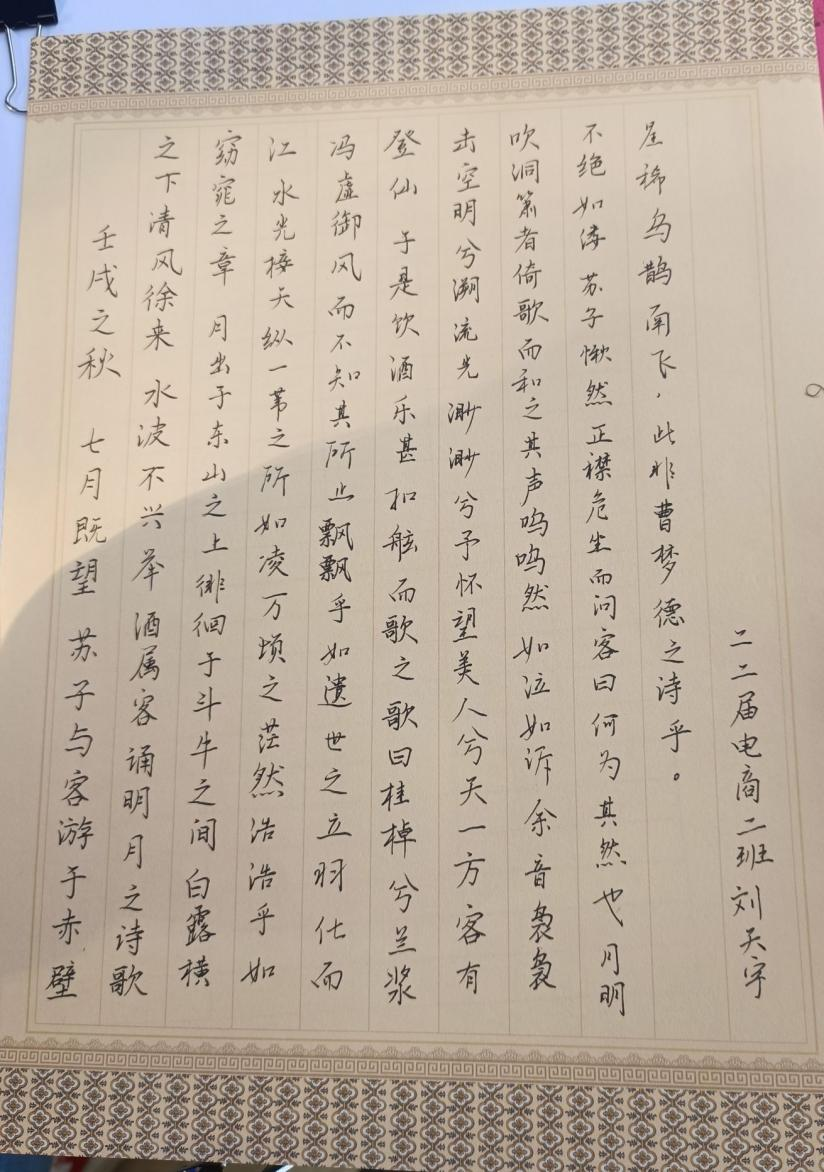 壬戌之秋 七月既望 苏子与客游于赤壁
之下清风徐来 水波不兴 举酒属客诵明月之诗歌
窈窕之章 月出于东山之上徘徊于斗牛之间 白露横
江 水光接天纵一苇之所如凌万顷之茫然浩浩乎如
冯虚御风而不知其所止飘飘乎如遗世之立羽仕而
登仙 于是饮酒乐甚扣舷而歌之歌曰桂棹兮兰浆
击空明兮溯流光渺渺兮予怀望美人兮天一方客有
吹洞箫者倚歌而和之其声呜呜然如泣如诉余音袅袅
不绝如缕 苏子愀然 正襟危坐而问客曰何为其然也月明
星稀乌鹊南飞，此非曹梦德之诗乎。
二二届电商二班刘天宇